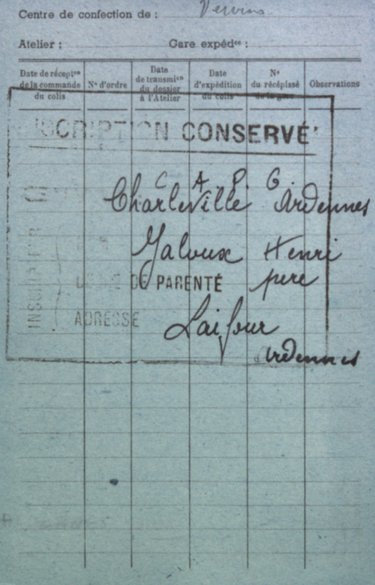 Centre de confection de : Vervins
Atelier : Gare expédce :
Date de récepton de la commande du colis
N° d'ordre
Date de transmion du dossier à l'Atelier
Date d'expédition du colis
N° du récépissé de la gare
Observations
INSCRIPTION CONSERVÉ
C A P G
Charleville Ardennes
INSCRIPTION
Jaloux Henri
DE PARENTÉ père
ADRESSE Laifour
Ardennes